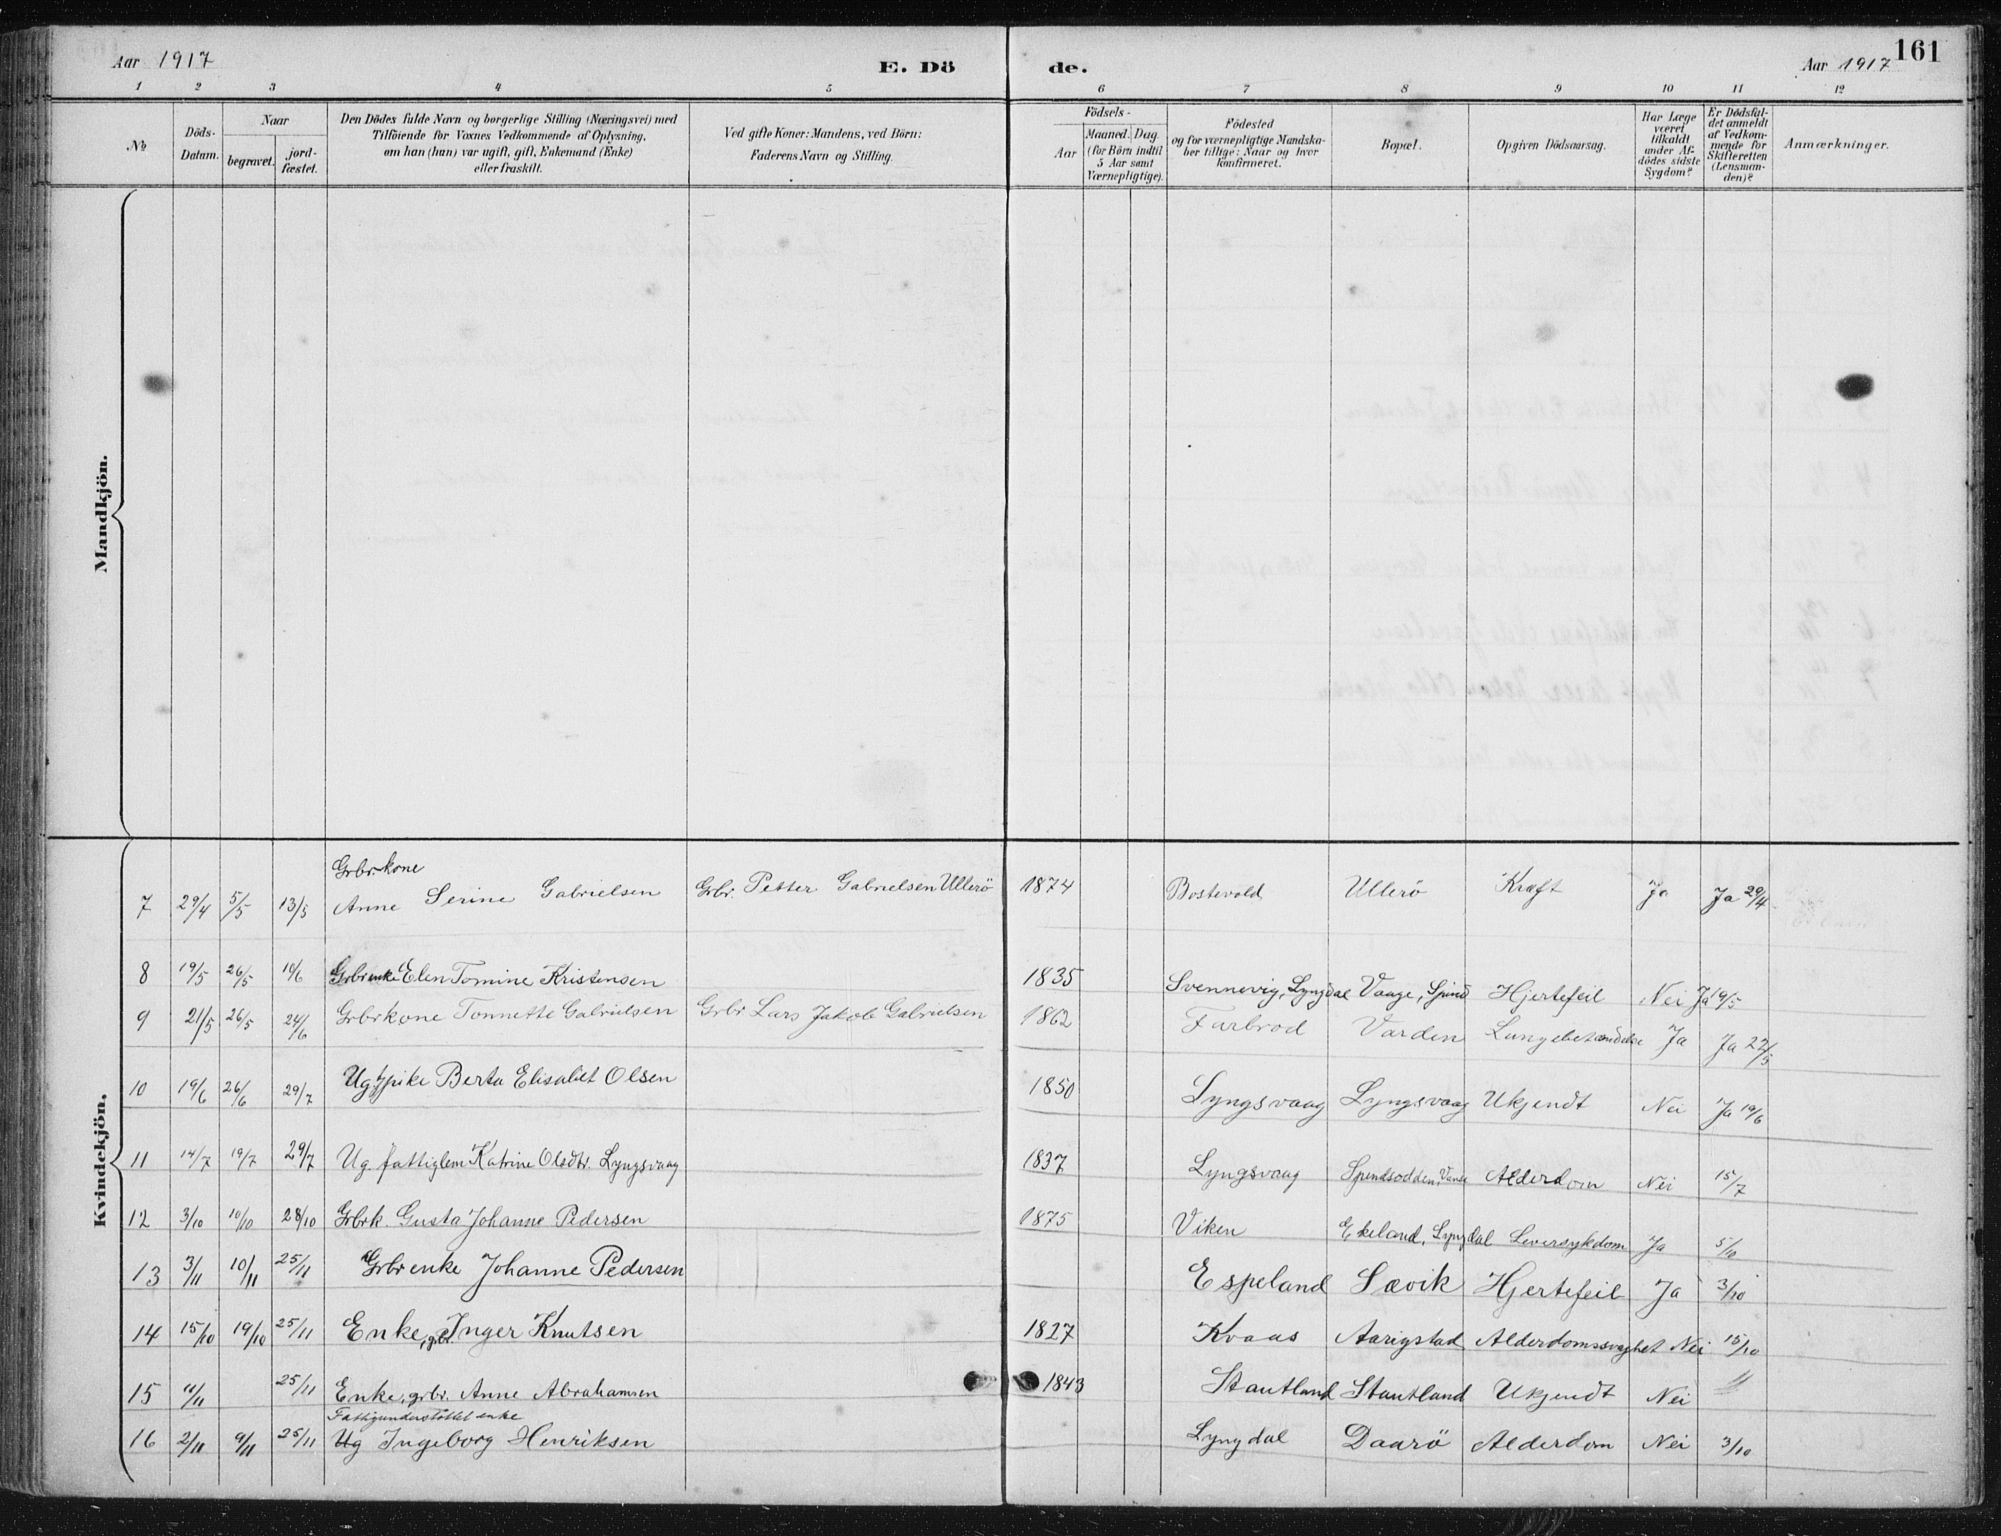 Aar 1917 E. Dö de. Aar 1917 161
1 2 3 4 5 6 7 8 9 10 11 12
№
Döds-Datum.
Naar
begravet.
jord-fæstet.
Den Dödes fulde Navn og borgerlige Stilling (Næringsvei) med
Tilföiende for Voxnes Vedkommende af Oplysning,
om han (hun) var ugift, gift, Enkemand (Enke)
eller fraskilt.
Ved gifte Koner: Mandens, ved Börn:
Faderens Navn og Stilling.
Födsels-
Aar
Maaned. Dag.
(for Börn indtil
5 Aar samt
Værnepligtige).
Födested
og for værnepligtige Mandska-
ber tillige: Naar og hvor
konfirmeret.
Bopæl.
Opgiven Dödsaarsag.
Har Læge
været
tilkaldt
under Af-
dödes sidste
Sygdom?
Er Dödsfal-
det anmeldt
af Vedkom-
mende for
Skifteretten
(Lensman-
den)?
Anmærkninger.
Mandkjön.
Kvindekjön.
Grbr.kone
7 29/4 5/5 13/5 Anne Serine Gabrielsen Grbr. Petter Gabrielsen Ullerö 1874 Bostevold Ullerö Kræft Ja Ja 29/4
8 19/5 26/5 10/6 Grbrenke Elen Tomine Kristensen 1835 Svennevig, Lyngdal Vaage, Spind Hjertefeil Nei Ja 19/5
9 21/5 26/5 24/6 Grbrkone Tonnette Gabrielsen Grbr Lars Jakob Gabrielsen 1862 Farbrod Varden Lungebetændelse Ja Ja 22/5
10 19/6 26/6 29/7 Ug. pike Berta Elisabet Olsen 1850 Lyngsvaag Lyngsvaag Ukjendt Nei Ja 19/6
11 14/7 19/7 29/7 Ug. fattiglem Katrine Olsdtr. Lyngsvaag 1837 Lyngsvaag Spindsodden, Vanse Alderdom Nei 15/7
12 3/10 10/10 28/10 Grbrk. Gusta Johanne Pedersen 1875 Viken Ekeland, Lyngdal Leversykdom Ja 5/10
13 3/11 10/11 25/11 Grbrenke Johanne Pedersen Espeland Sævik Hjertefeil Ja 3/10
14 15/10 19/10 25/11 Enke, grb. Inger Knutsen 1827 Kvaas Aarigstad Alderdomssvaghet Nei 15/10
15 11/11 25/11 Enke, grbr. Anne Abrahamsen 1843 Stautland Stautland Ukjendt Nei
Fattigunderstöttet enke
16 2/11 9/11 25/11 Ug Ingeborg Henriksen Lyngdal Daarö Alderdom Nei 3/10